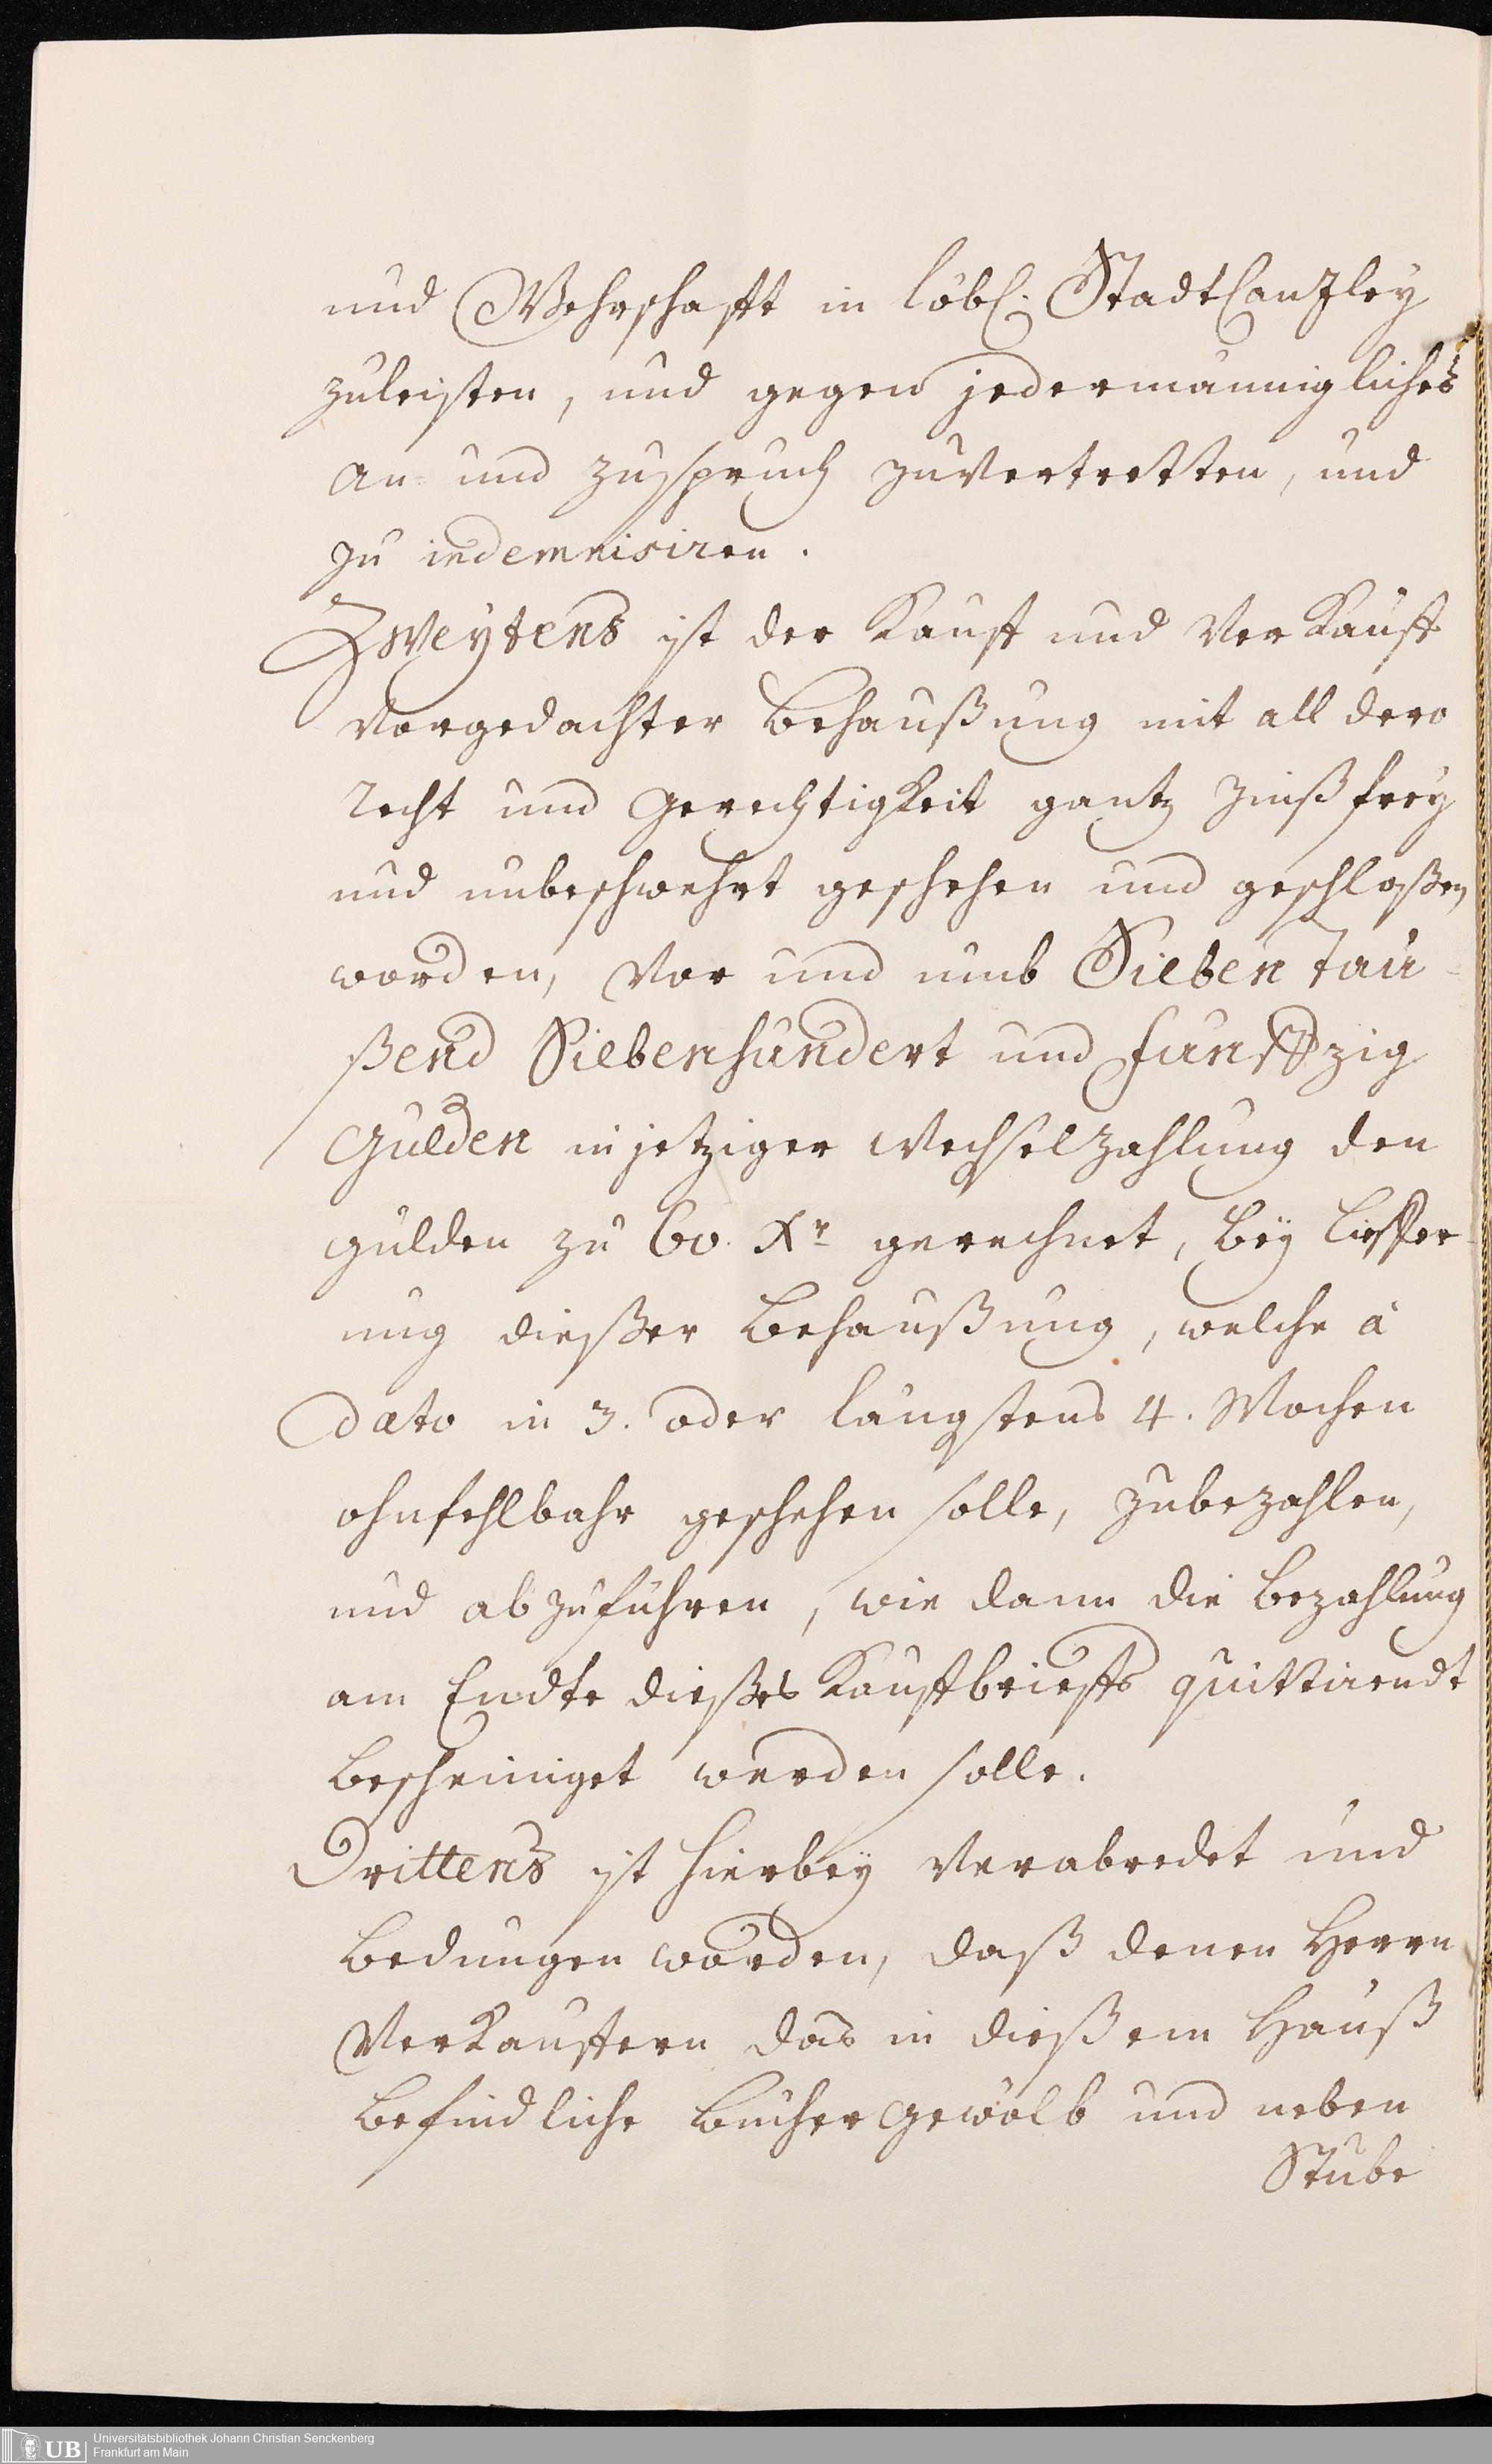 und Wehrschafft in löbl. StadtCantzley
zuleisten, und gegen jedermänniglichs
an- und zuspruch zuvertretten, und
zu indemnisiren.
Zweytens ist der Kauff und Verkauff
vorgedachter Behaußung mit all dero
recht und Gerechtigkeit gantz zinßfrey
und unbeschwehrt geschehen und geschloßen
worden, vor und umb Sieben tau-
ßend Siebenhundert und funfftzig
Gulden in jetziger Wechselzahlung den
gulden zu 60. Xr gerechnet, bey lieffer-
ung dießer Behaußung, welche à
dato in 3. oder längstens 4. Wochen
ohnfehlbahr geschehen solle, zubezahlen,
und abzuführen, wie dann die bezahlung
am Endte dießes Kauffbrieffs quittirendt
bescheiniget werden solle.
Drittens ist hierbey verabredet und
bedungen worden, daß denen Herrn
Verkauffern das in dießem Hauß
befindliche Büchergewölb und neben
Stube
Universitätsbibliothek Johann Christian Senckenberg
Frankfurt am Main
UB